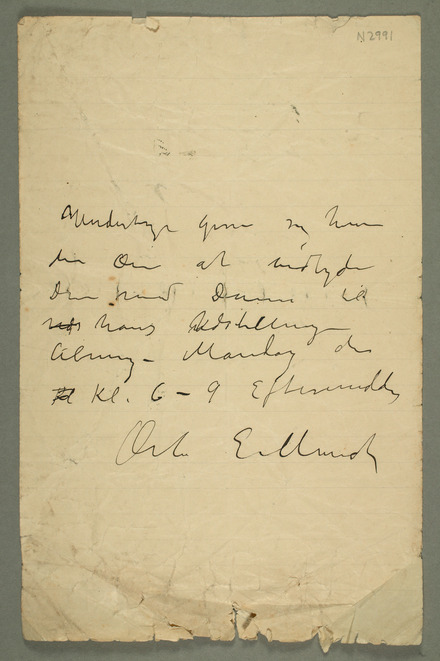 N 2991
Undertegn giver sig herm
den Ære at indbyde
Dem med Damer til
hans Udstillings
Åbning – Mandag den
Kl. 6 – 9 Eftermiddag
E. Munch